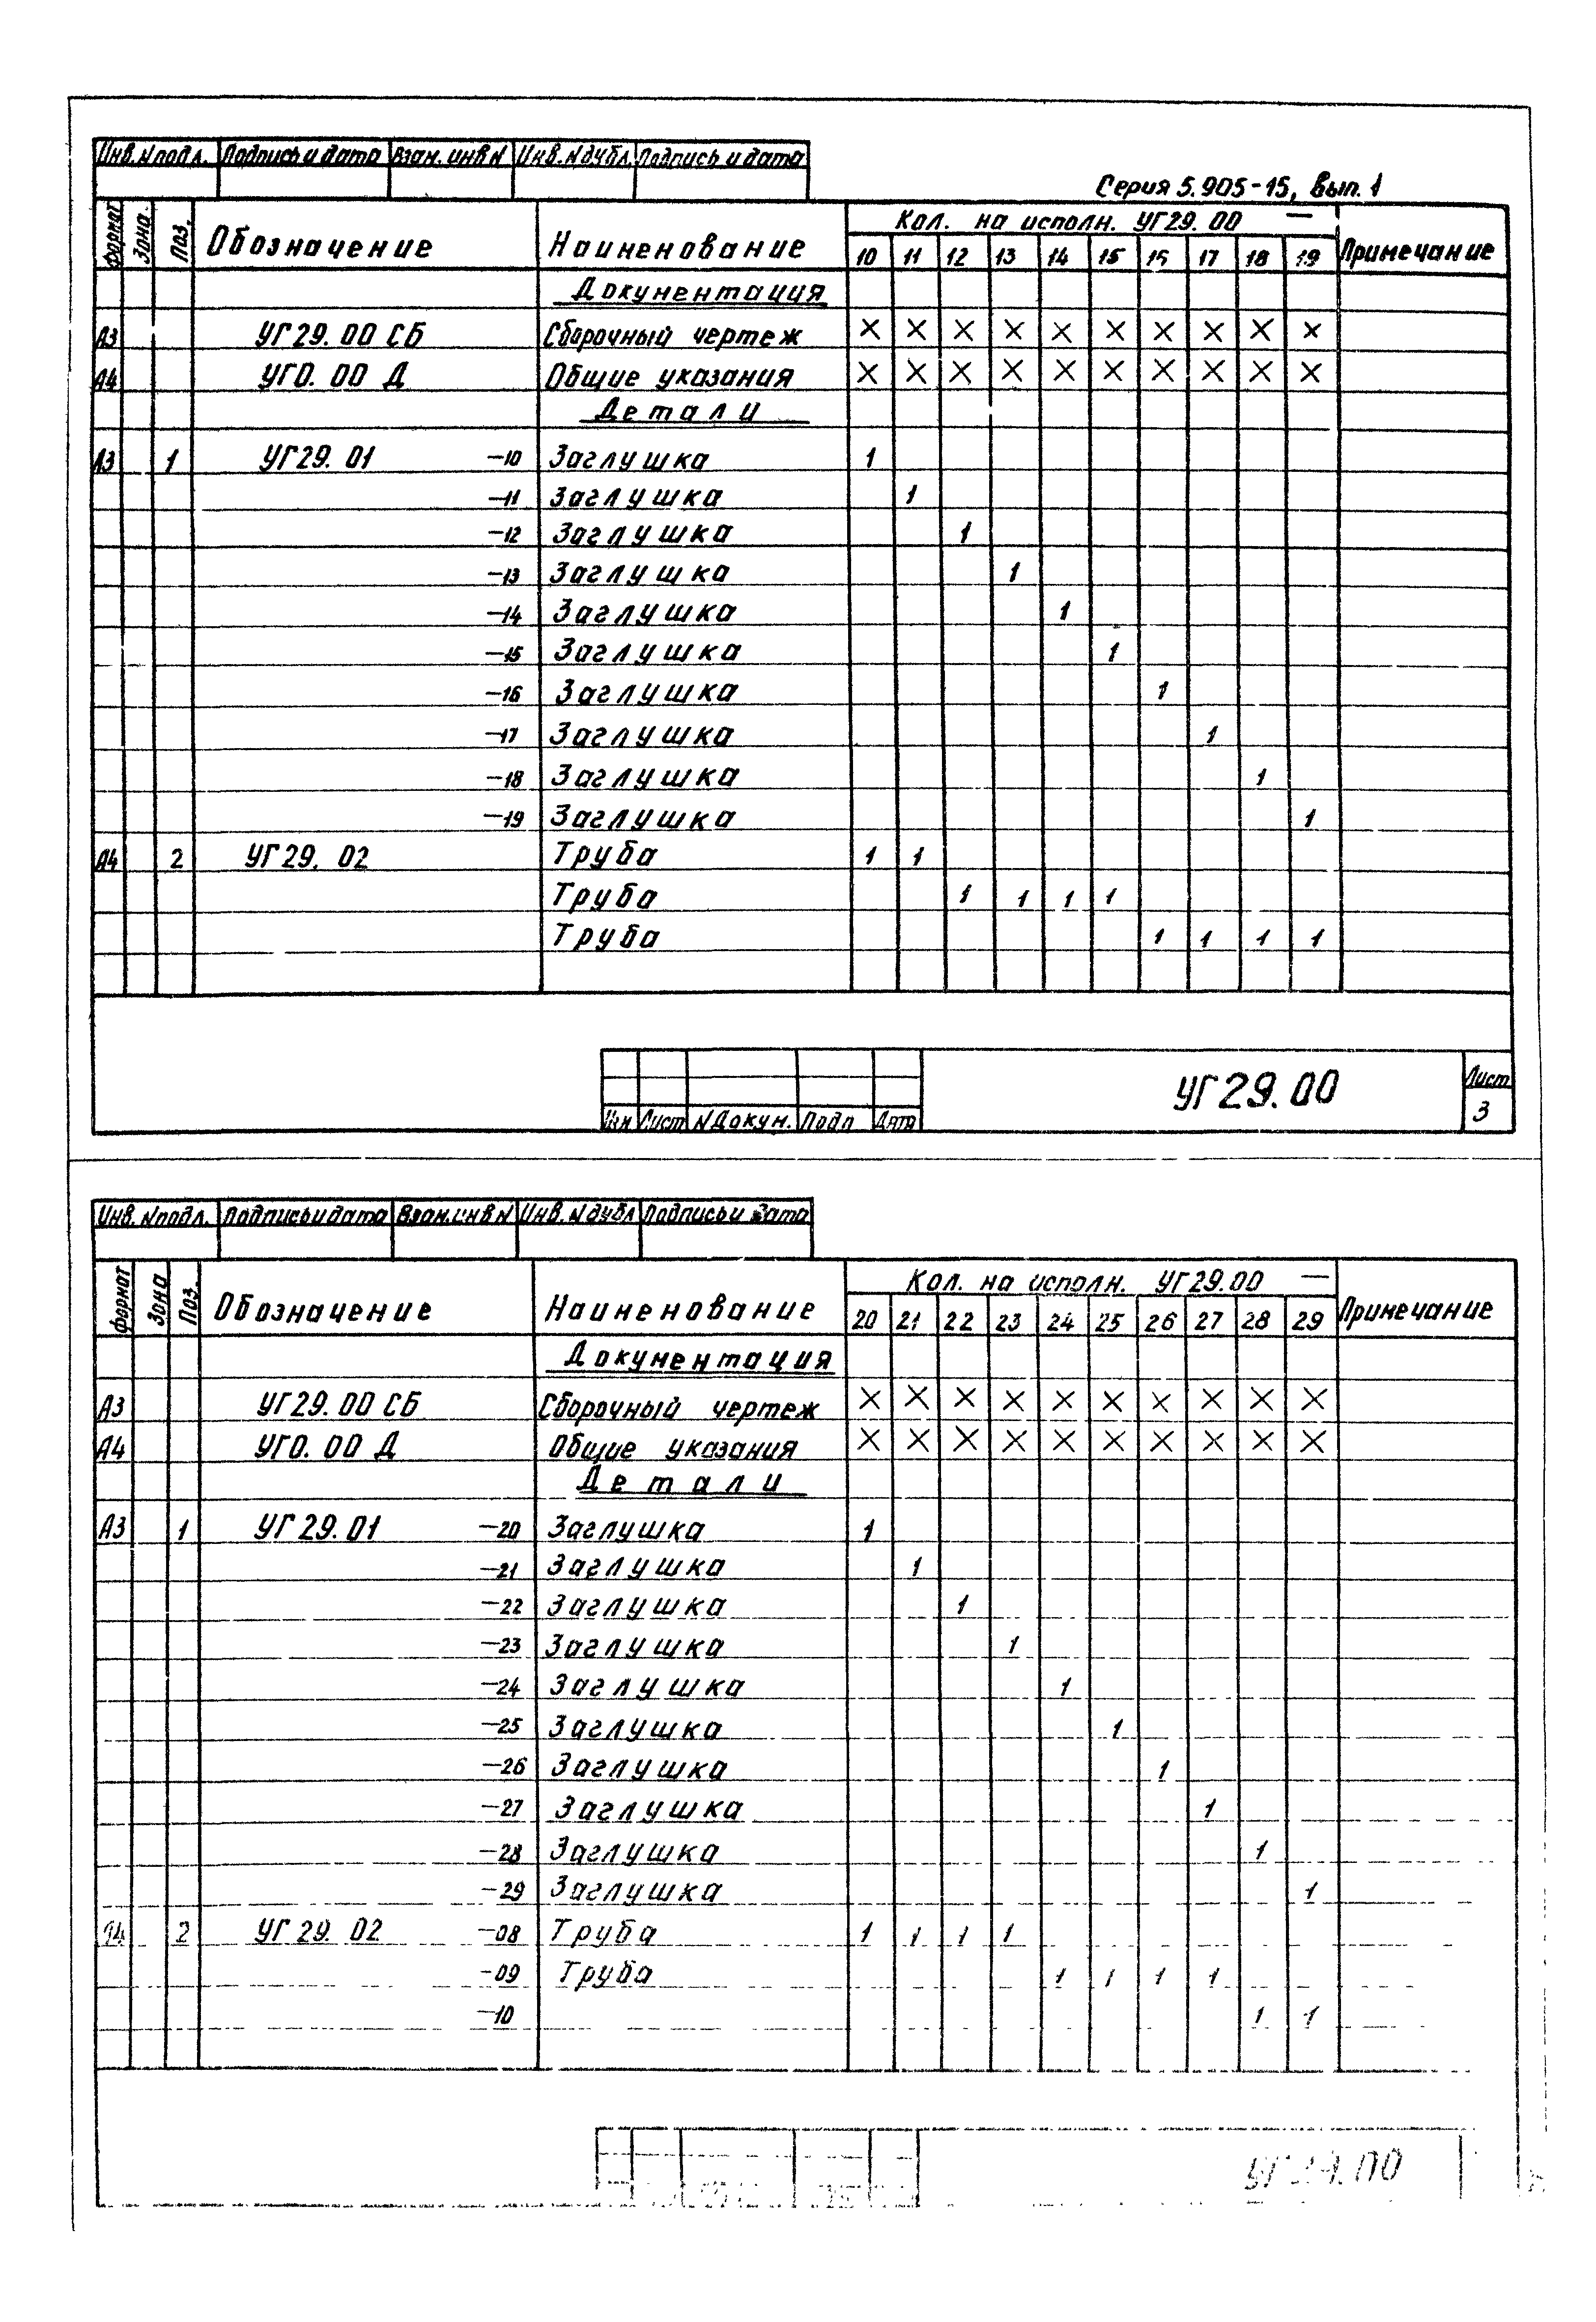 Инв. N подл. Подпись и дата Взам. инв N Инв. N дубл. Подпись и дата
Серия 5.905-15, Вып. 1
Формат Зона. Поз. Обозначение Наименование Кол. на исполн. УГ29.00 — Примечание
10 11 12 13 14 15 16 17 18 19
Документация
А3 УГ29.00 СБ Сборочный чертеж × × × × × × × × × ×
А4 УГ0.00 Д Общие указания × × × × × × × × × ×
Детали
А3 1 УГ29.01 -10 Заглушка 1
-11 Заглушка 1
-12 Заглушка 1
-13 Заглушка 1
-14 Заглушка 1
-15 Заглушка 1
-16 Заглушка 1
-17 Заглушка 1
-18 Заглушка 1
-19 Заглушка 1
А4 2 УГ29.02 Труба 1 1
Труба 1 1 1 1
Труба 1 1 1 1
УГ29.00 Лист
3
Изм Лист N Докум. Подп Дата
Инв. N подл. Подпись и дата Взам. инв N Инв. N дубл Подпись и дата
Формат Зона Поз. Обозначение Наименование Кол. на исполн. УГ29.00 — Примечание
20 21 22 23 24 25 26 27 28 29
Документация
А3 УГ29.00 СБ Сборочный чертеж × × × × × × × × × ×
А4 УГ0.00 Д Общие указания × × × × × × × × × ×
Детали
А3 1 УГ29.01 -20 Заглушка 1
-21 Заглушка 1
-22 Заглушка 1
-23 Заглушка 1
-24 Заглушка 1
-25 Заглушка 1
-26 Заглушка 1
-27 Заглушка 1
-28 Заглушка 1
-29 Заглушка 1
А4 2 УГ29.02 -08 Труба 1 1 1 1
-09 Труба 1 1 1 1
-10 1 1
УГ29.00